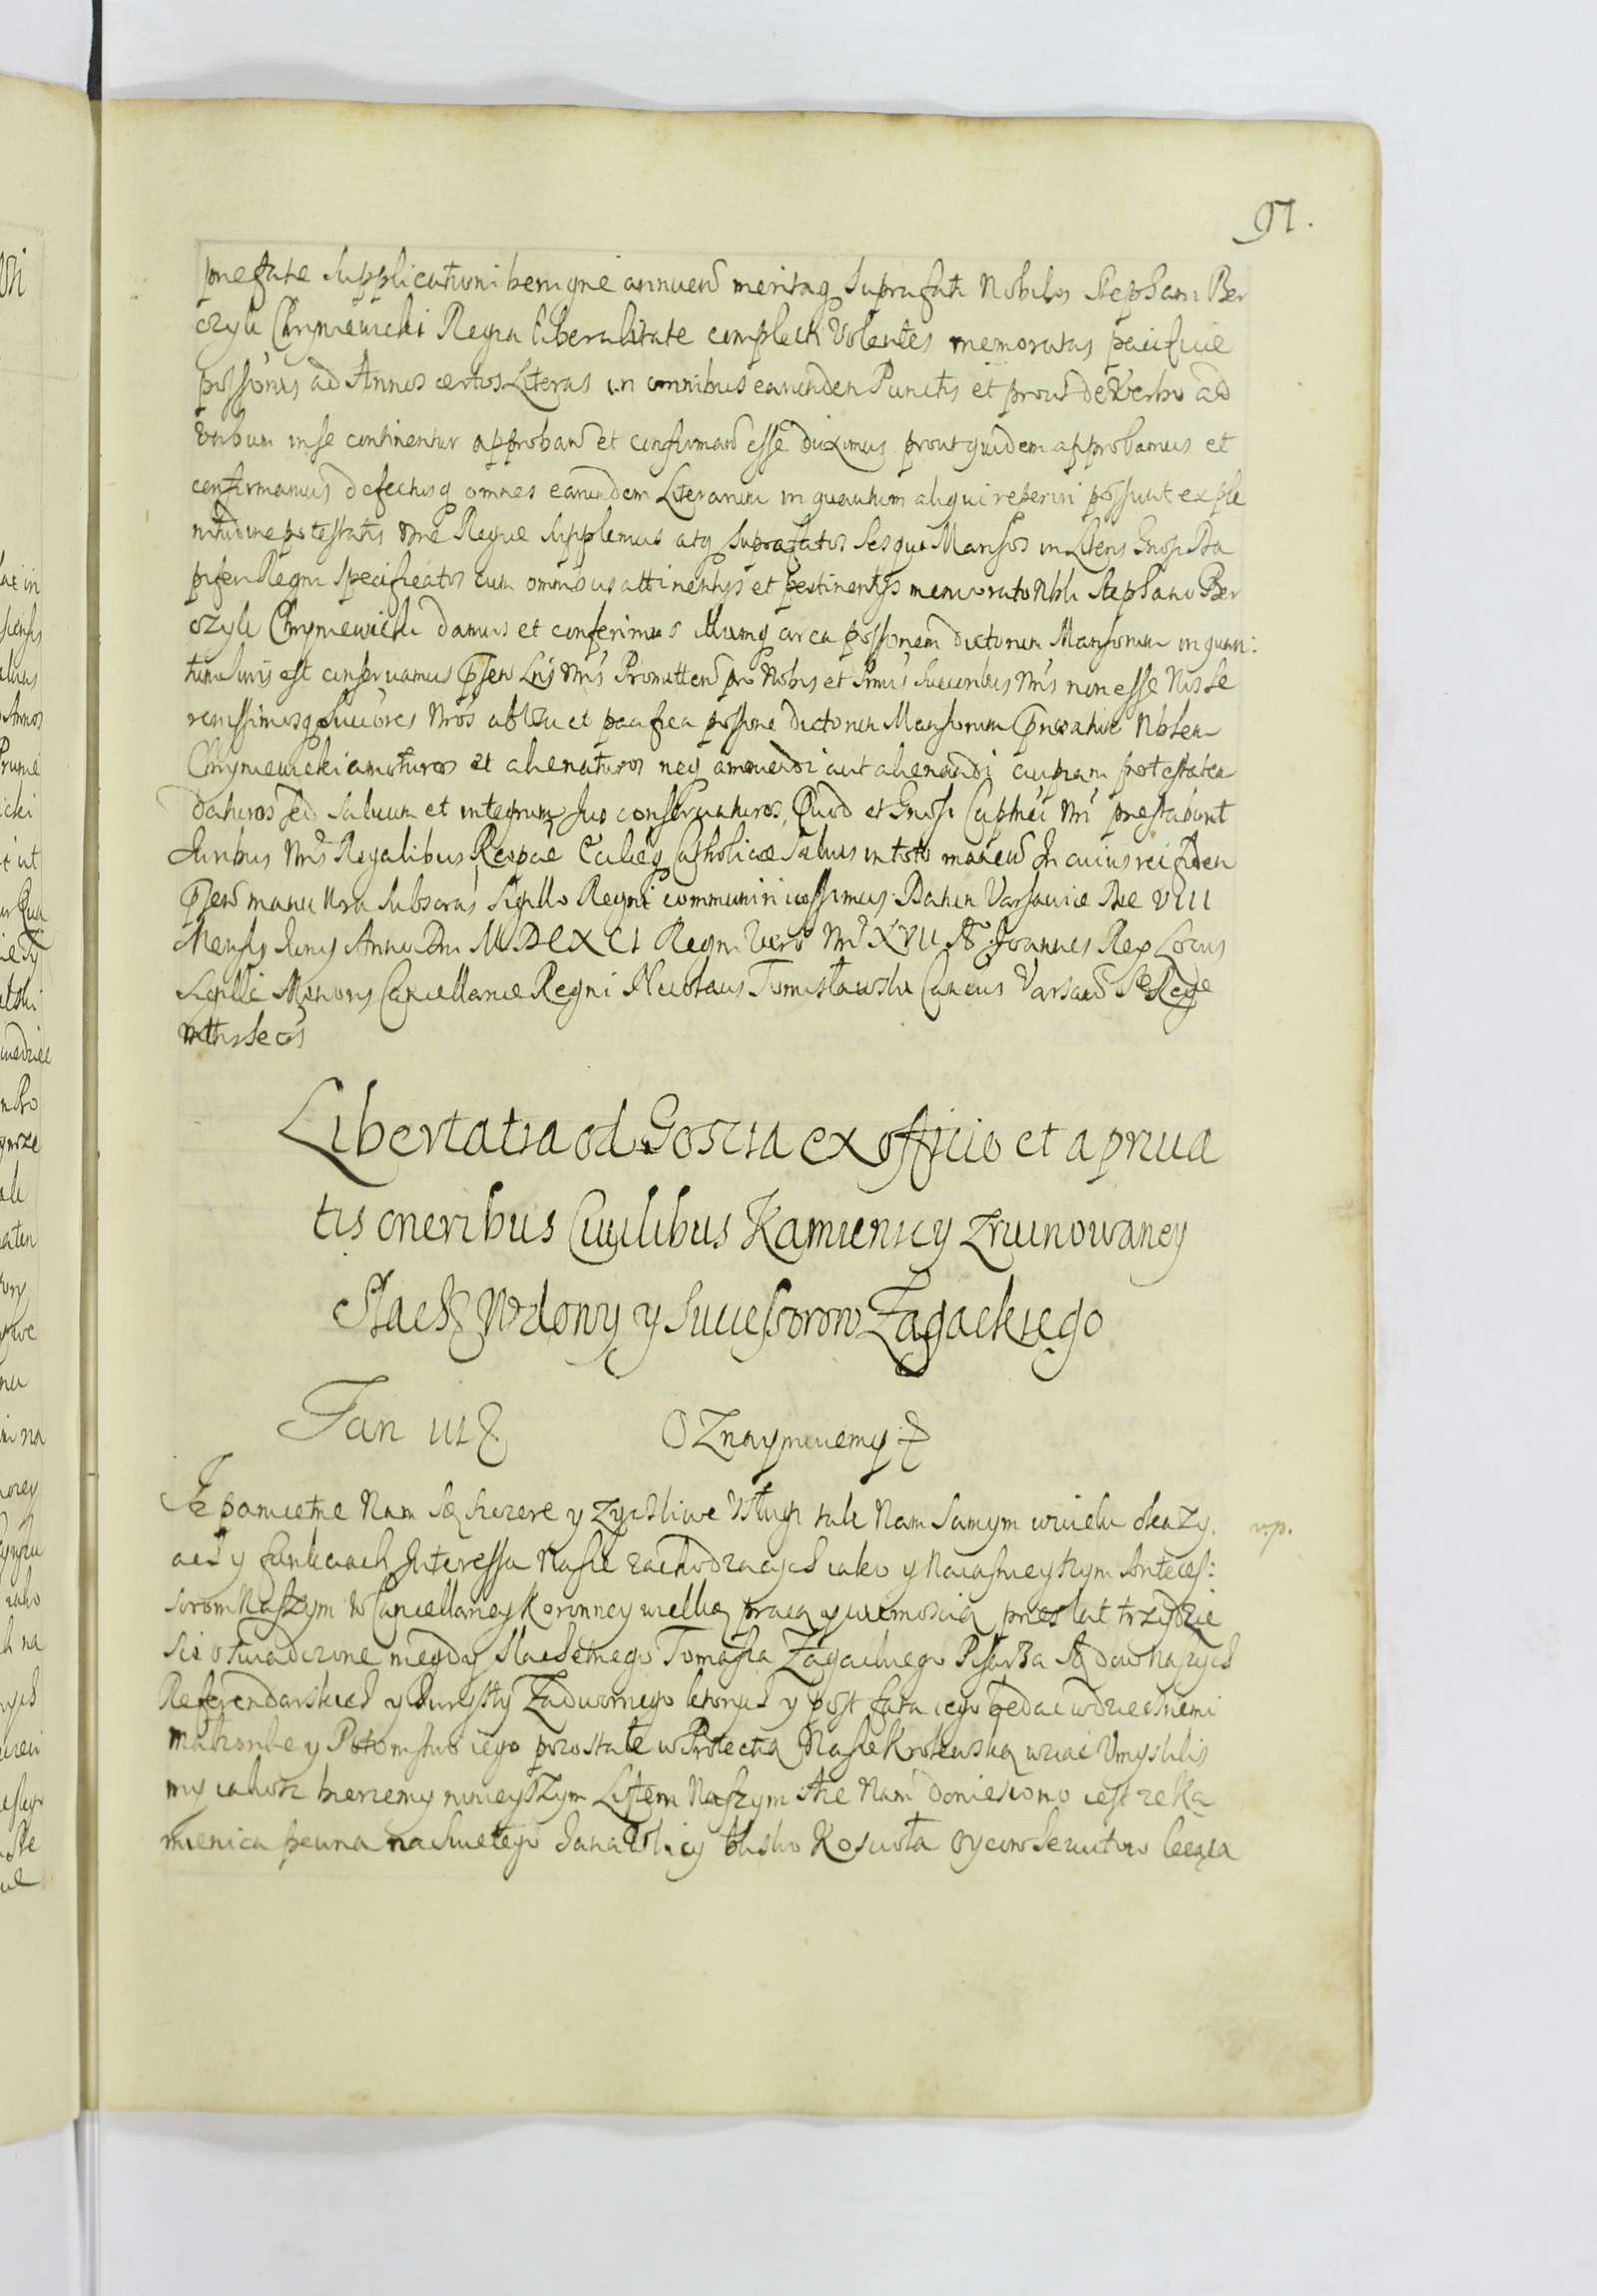 91.
prefate Supplicationi benigne annuen meritaq Suprafati Nobilis Stephani Ber
czyli Chryniewicki Regia liberalitate complecti Volentes memoratas pacificæ
possionis ad Annos certos Literas in omnibus earunden Punctis et prout de Verbo ad
Verbum inse continentur approban et confirman esse duximus prout quidem approbamus et
confirmamus defectusq omnes earundem Literarum in quantum aliqui reperiri possunt ex ple
nitudine potestatis Regiæ Supplemus atq Suprafatos Sesqui Mansos in Literis
Regni Specificatos cum omnibus attinentijs et pertinentijs memorato Nbli Stephano Ber
czyli Chryniewicki damus et conferimus Illumq circa possionem dictorum Mansorum in quan:
tum Juris est conservamus Pñsen Lris Nris Promitten pro Nobis et Srmis Succoribus Nris non esse Nos Se
renissimosq Succores Nros ab Usu et pacifica possione dictorum Mansorum Nblem
Chryniewicki amoturos et alienaturos neq amovendi aut alienandi cuipiam potestatem
daturos sed Salvum et integrum Jus conservaturos, Quod et Gnosi Capnei Nri prestabunt
Juribus Nris Regalibus Reipcæ Eccliæq Catholicæ Salvis in toto manen In cuius rei fidem
Pñsen manu Nra Subscras Sigillo Regni communiri iussimus. Datum Varsaviæ Die VIII
Mensis Junij Anno Dni MDCXCI Regni Vero Nri XVII Ao Joannes Rex Locus
Sigilli Minoris Cancellariæ Regni Nicolaus Tomisławski Varsavien
Mttis Secris
Libertatia od Goscia ex officio et a priua
tis oneribus Ciuilibus Kamienicy zruinowaney
Szlach Wdowy y Successorow Zagackiego
Jan III &
Oznaymuiemy &
Iz pamietne Nam Są szczere y zyczliwe Vsługi tak Nam Samym wwielu okazy.
ach y funkciach Interessu Nasze zachodzacych iako y Naiasnieyszym Anteces:
sorom Naszym w Cancellaryey Koronney wielką pracą y wiernoscią przes lat trzydzie
sci oswiadczone niegdy Slachetnego Tomasza Zagackiego Pisarza Sądow Naszych
Referendarskich y Jurysty Zadwornego ktorych y post fata iego będąc wdziecznemi
małzonke y Potomstwo iego pozostałe w Protectią Nasze Krolewską wziąć Vmyslilis
my iakosz bierzemy ninieyszym Listem Naszym Ize Nam doniesiono iest ze Ka
mienica pewna na Swietego Jana Vlicy blisko Koscioła Oycow
v.p.